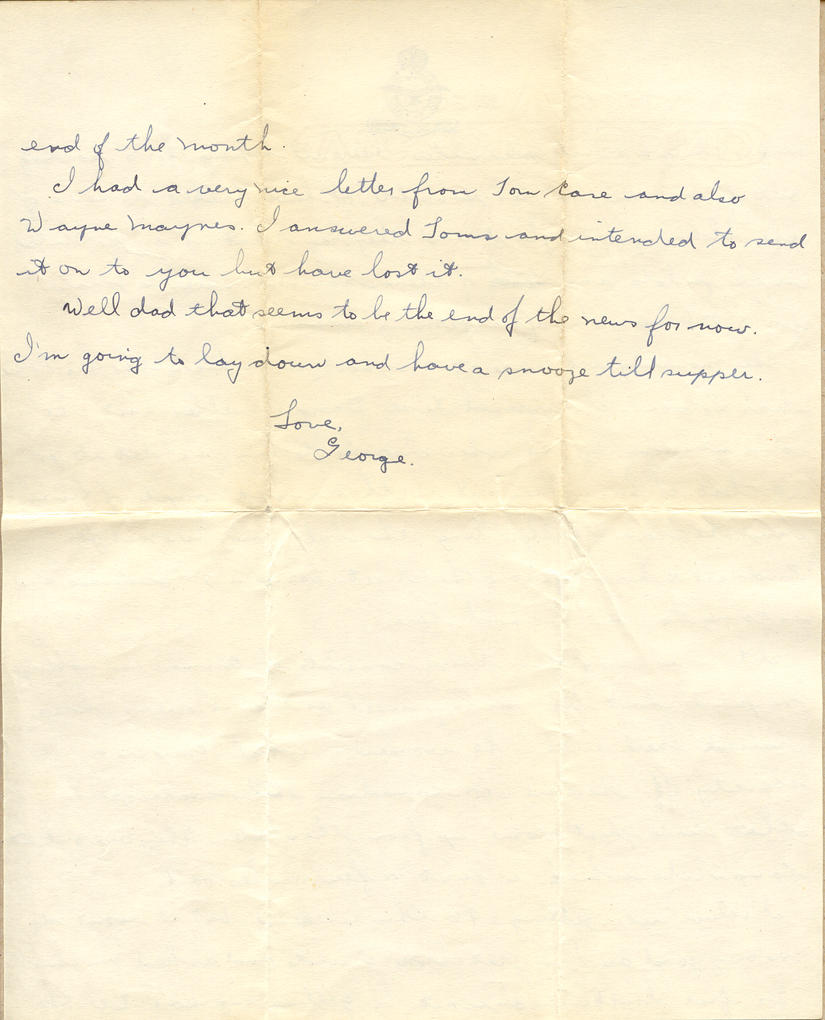 end of the month.
I had a very nice letter from Tom Care and also
Wayne Maynes. I answered Toms and intended to send
it on to you but have lost it.
Well dad that seems to be the end of the news for now.
I'm going to lay down and have a snooze till supper.
Love,
George.